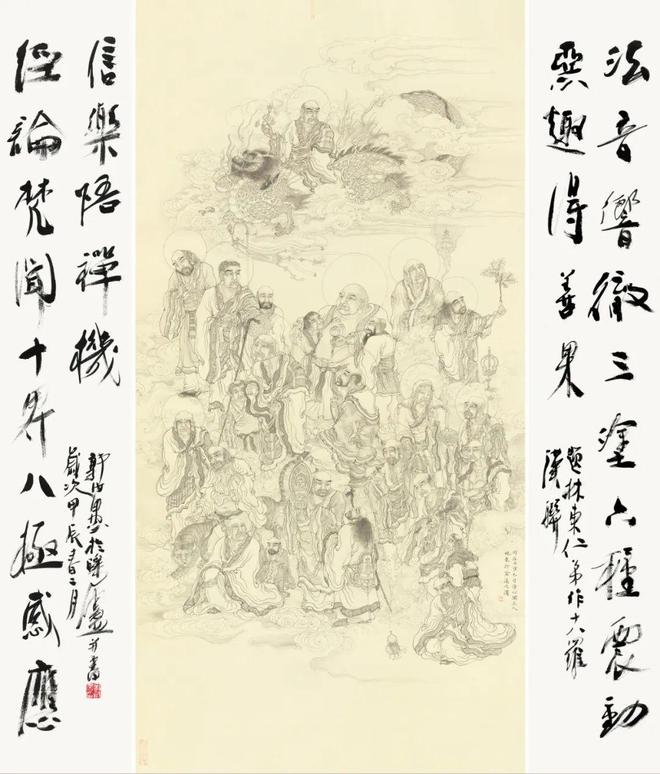 法音響徹三塗六種震動
異趣得善果
題林東仁弟作十八羅
漢聯
經論梵聞十界八極感應
信樂悟禪機
歲次甲辰春二月